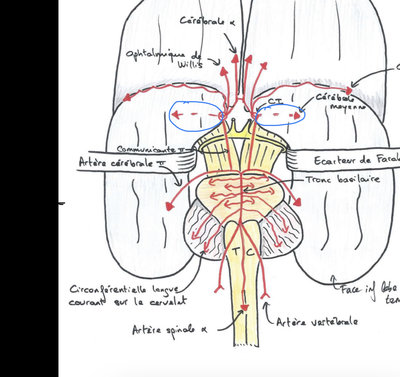 Cérébrale α
Ophtalmique de
Willis
C
C I
Cérébrale
moyenne
communicante π
Artère cérébrale π
Ecarteur de Farab
Tronc basilaire
T C
Circonférentielle longue
courant sur la cervelet
Face inf lobe
tem
Artère spinale α
Artère vertébrale